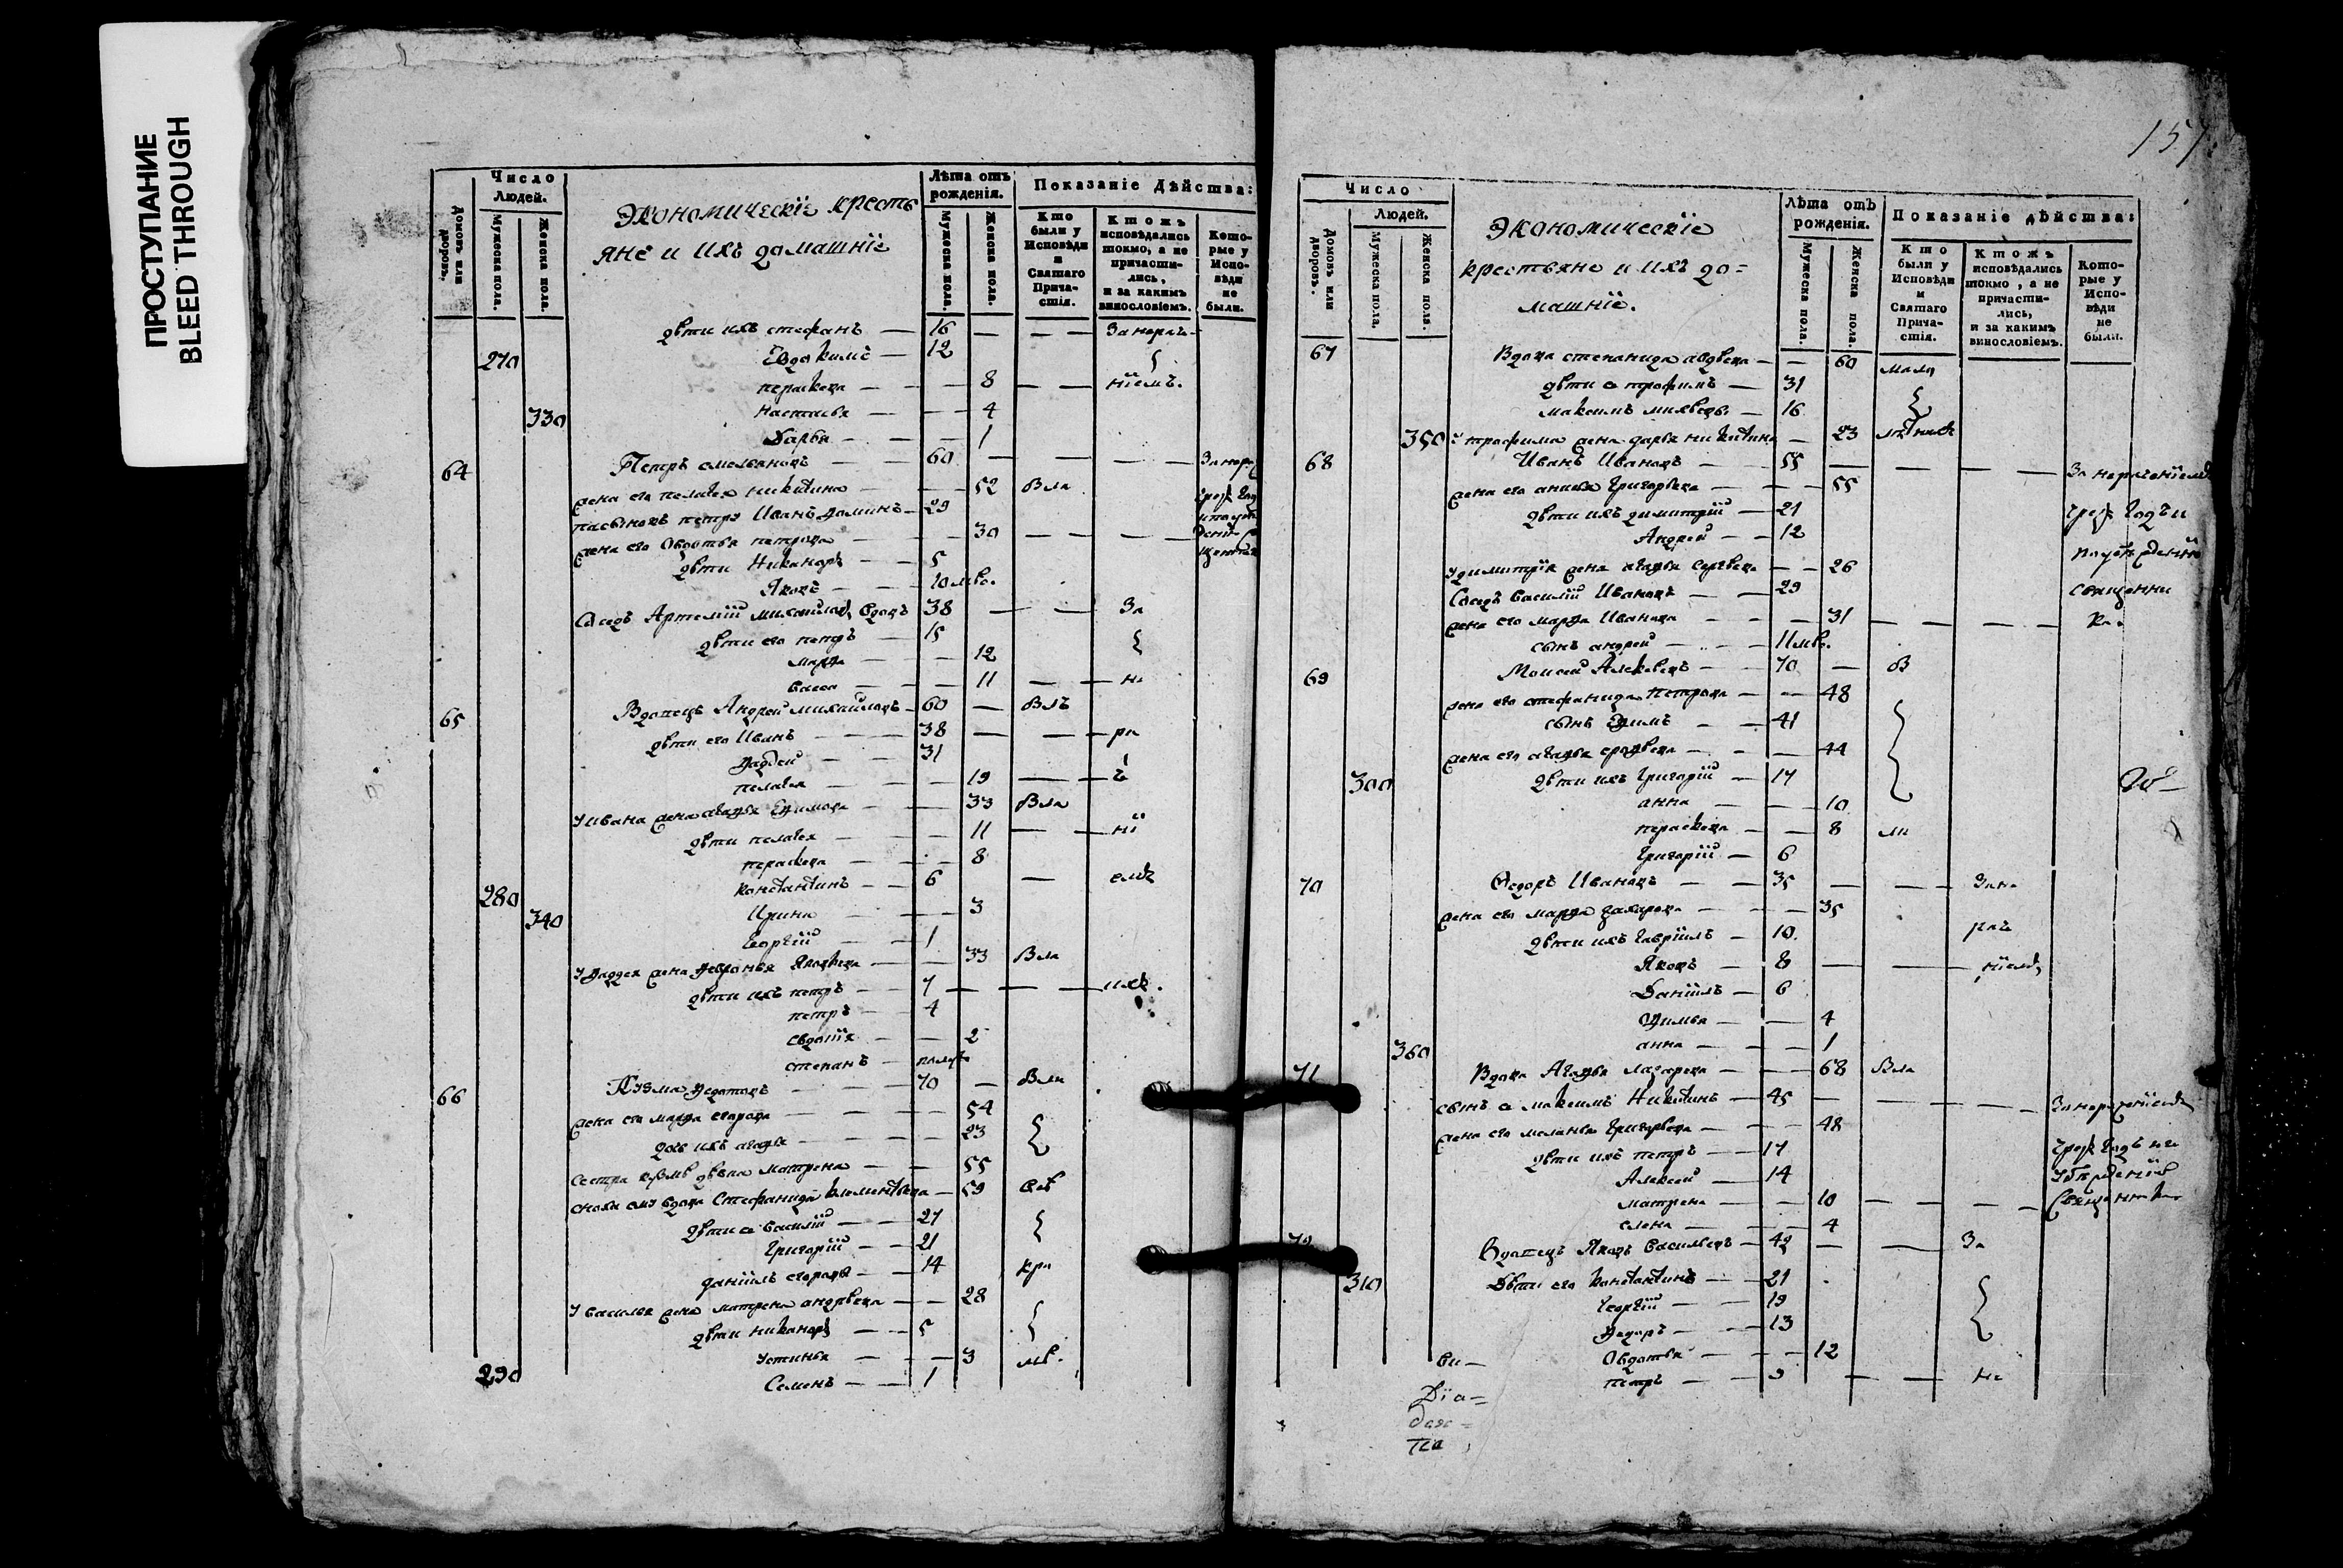 ПРОСТУПАНИЕ
BLEED THROUGH
Число Людей.
Домовъ или дворовъ.
Мужеска пола.
Женска пола.
Экономическіе кресть
яне и ихъ домашніе
Лѣта отъ рожденія.
Мужеска пола.
Женска пола.
Показаніе Дѣйства:
Кто были у Исповѣди и Святаго Прича-стія.
Ктожъ исповѣдались токмо, а не причасти-лись, и за какимъ винословіемъ.
Кото-рые у Испо-вѣди не были.
дѣти ихъ стефанъ — 16 — — —
270 Евдокимъ — 12
параскева — — 8 — — ніемъ.
330 настасья — — 4
дарья — — 1
64 Петръ емельяновъ — 60 — — —
жена его пелагея никитина — 52 Бы
пасынокъ петру Иванъ — 29
жена его Овдотья петрова — 30 — — —
дѣти Никаноръ — 5
Яковъ — 10 мѣс.
Соседъ Артемій михайловъ вдовъ 38 — — За
дѣти его петръ — 15
марфа — — 12
— — 11 — — не
65 Вдовецъ Андрей михайловъ — 60 —
дѣти его Иванъ — 38 — — ра
Фадей — 31
пелагея — — 19 — —
У ивана жена агафья Ефимова — 33
дѣти пелагея — — 11 — — ні
параскева — — 8
280 константинъ — 6 — емъ
340 Ирина — — 3
Георгій — 1
У Фаддея жена Февронья Яковлева — 33
дѣти ихъ петръ — 7 — — —
петръ — 4
евдокія — 2
степанъ —
66 Кузма Федотовъ — 70 —
жена его марфа егорова — 54
дочь ихъ агафья — 23
Сестра кузмѣ дѣвка матрена — 55
сноха ему вдова Стефанида клементьева — 59
дѣти е василій — 27
Григорій — 21
даніилъ егоровы — 14
У василья жена матрена андрѣева — 28
дѣти никаноръ — 5
устинья — — 3
290 Семенъ — 1
157.
Число Людей.
Домовъ или дворовъ.
Мужеска пола.
Женска пола.
Экономическіе
крестьяне и ихъ до=
машніе.
Лѣта отъ рожденія.
Мужеска пола.
Женска пола.
Показаніе дѣйства:
Кто были у Исповѣди и Святаго Прича-стія.
Ктожъ исповѣдались токмо, а не причасти-лись, и за какимъ винословіемъ.
Кото-рые у Испо-вѣди не были.
67 Вдова степанида авдѣева — — 60
дѣти е трофимъ — 31
максимъ — 16
350 У трофима жена дарья никитина — 23
68 Иванъ Ивановъ — 55 — — — За нераченіемъ
жена его Григорьева — — 55
дѣти ихъ димитрій — 21
Андрей — 12
У димитрія жена агафья Сергѣева — — 26
Соседъ василій Ивановъ — 29 священни
жена его марфа Иванова — — 31 — — — ка.
сынъ андрей — 11 мѣс.
69 Моисей Алексѣевъ — 70 —
жена его стефанида петрова — — 48
сынъ Ефимъ — 41
жена его агафья — — 44
300 дѣти ихъ Григорій — 17
анна — — 10
параскева — — 8 ли
Григорій — 6
70 Федоръ Ивановъ — 35 — —
жена его марфа захарова — — 35
дѣти ихъ Гавріилъ — 10
Яковъ — 8 — — ніемъ
Даніилъ — 6
Фимья — — 4
360 анна — — 1
71 Вдова Агафья лазарева — — 68
сынъ е максимъ Никитинъ — 45 — — — За нераченіемъ
жена его меланья Григорьева — — 48
дѣти ихъ петръ — 17
Алексей — 14
матрена — — 10 — — —
елена — — 4
72 Вдовецъ Яковъ Васильевъ — 42 — — За
310 Дѣти его константинъ — 21
Георгій — 19
Федоръ — 13
Овдотья — — 12
петръ — 9 — — не
Діа=